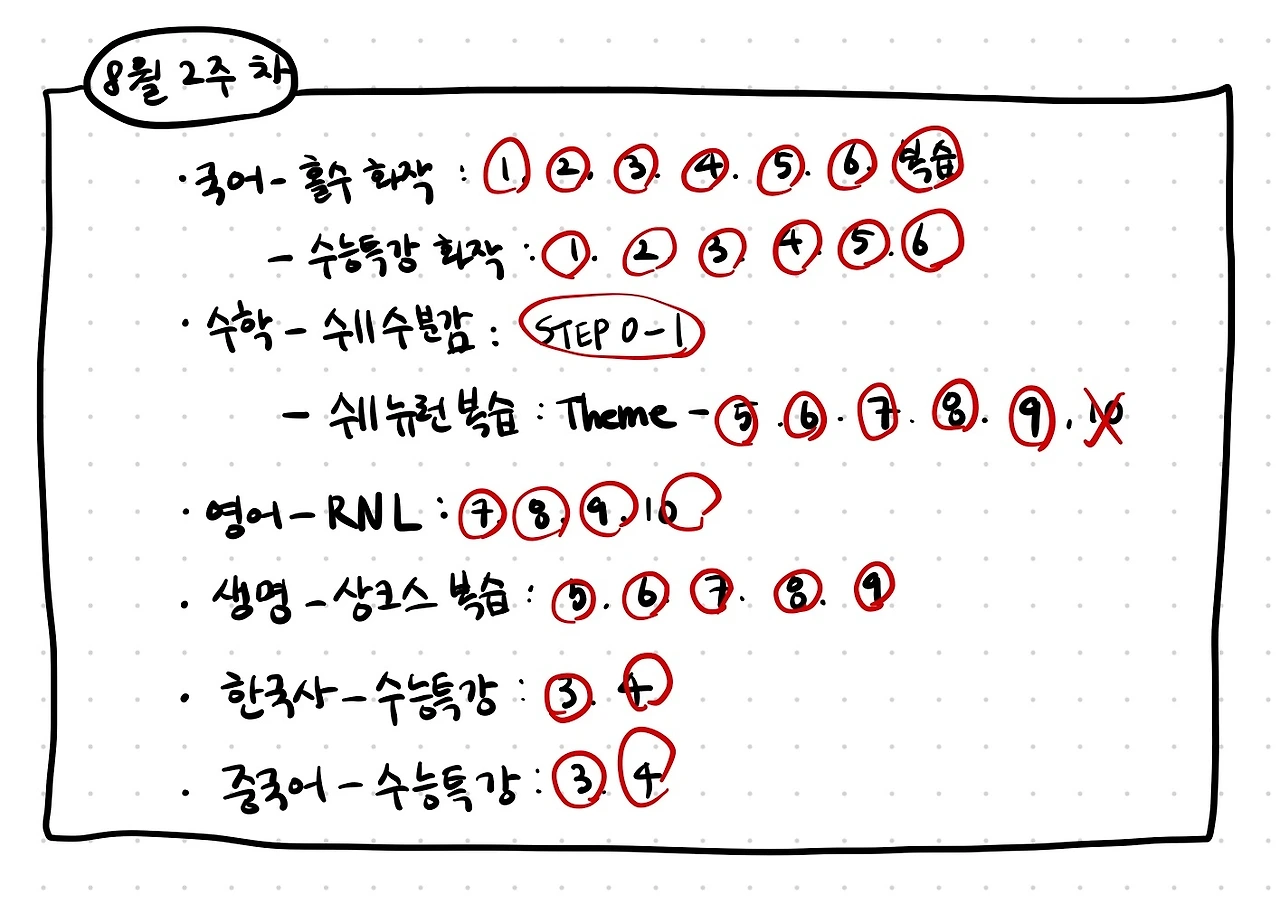 8월 2주 차
· 국어 - 홀수 화작 : 1. 2. 3. 4. 5. 6. 복습
- 수능특강 화작 : 1. 2. 3. 4. 5. 6
· 수학 - 수II 수분감 : STEP 0-1
- 수II 뉴런 복습 : Theme - 5. 6. 7. 8. 9. 10
· 영어 - RNL : 7. 8. 9. 10
· 생명 - 상크스 복습 : 5. 6. 7. 8. 9
· 한국사 - 수능특강 : 3. 4
· 중국어 - 수능특강 : 3. 4